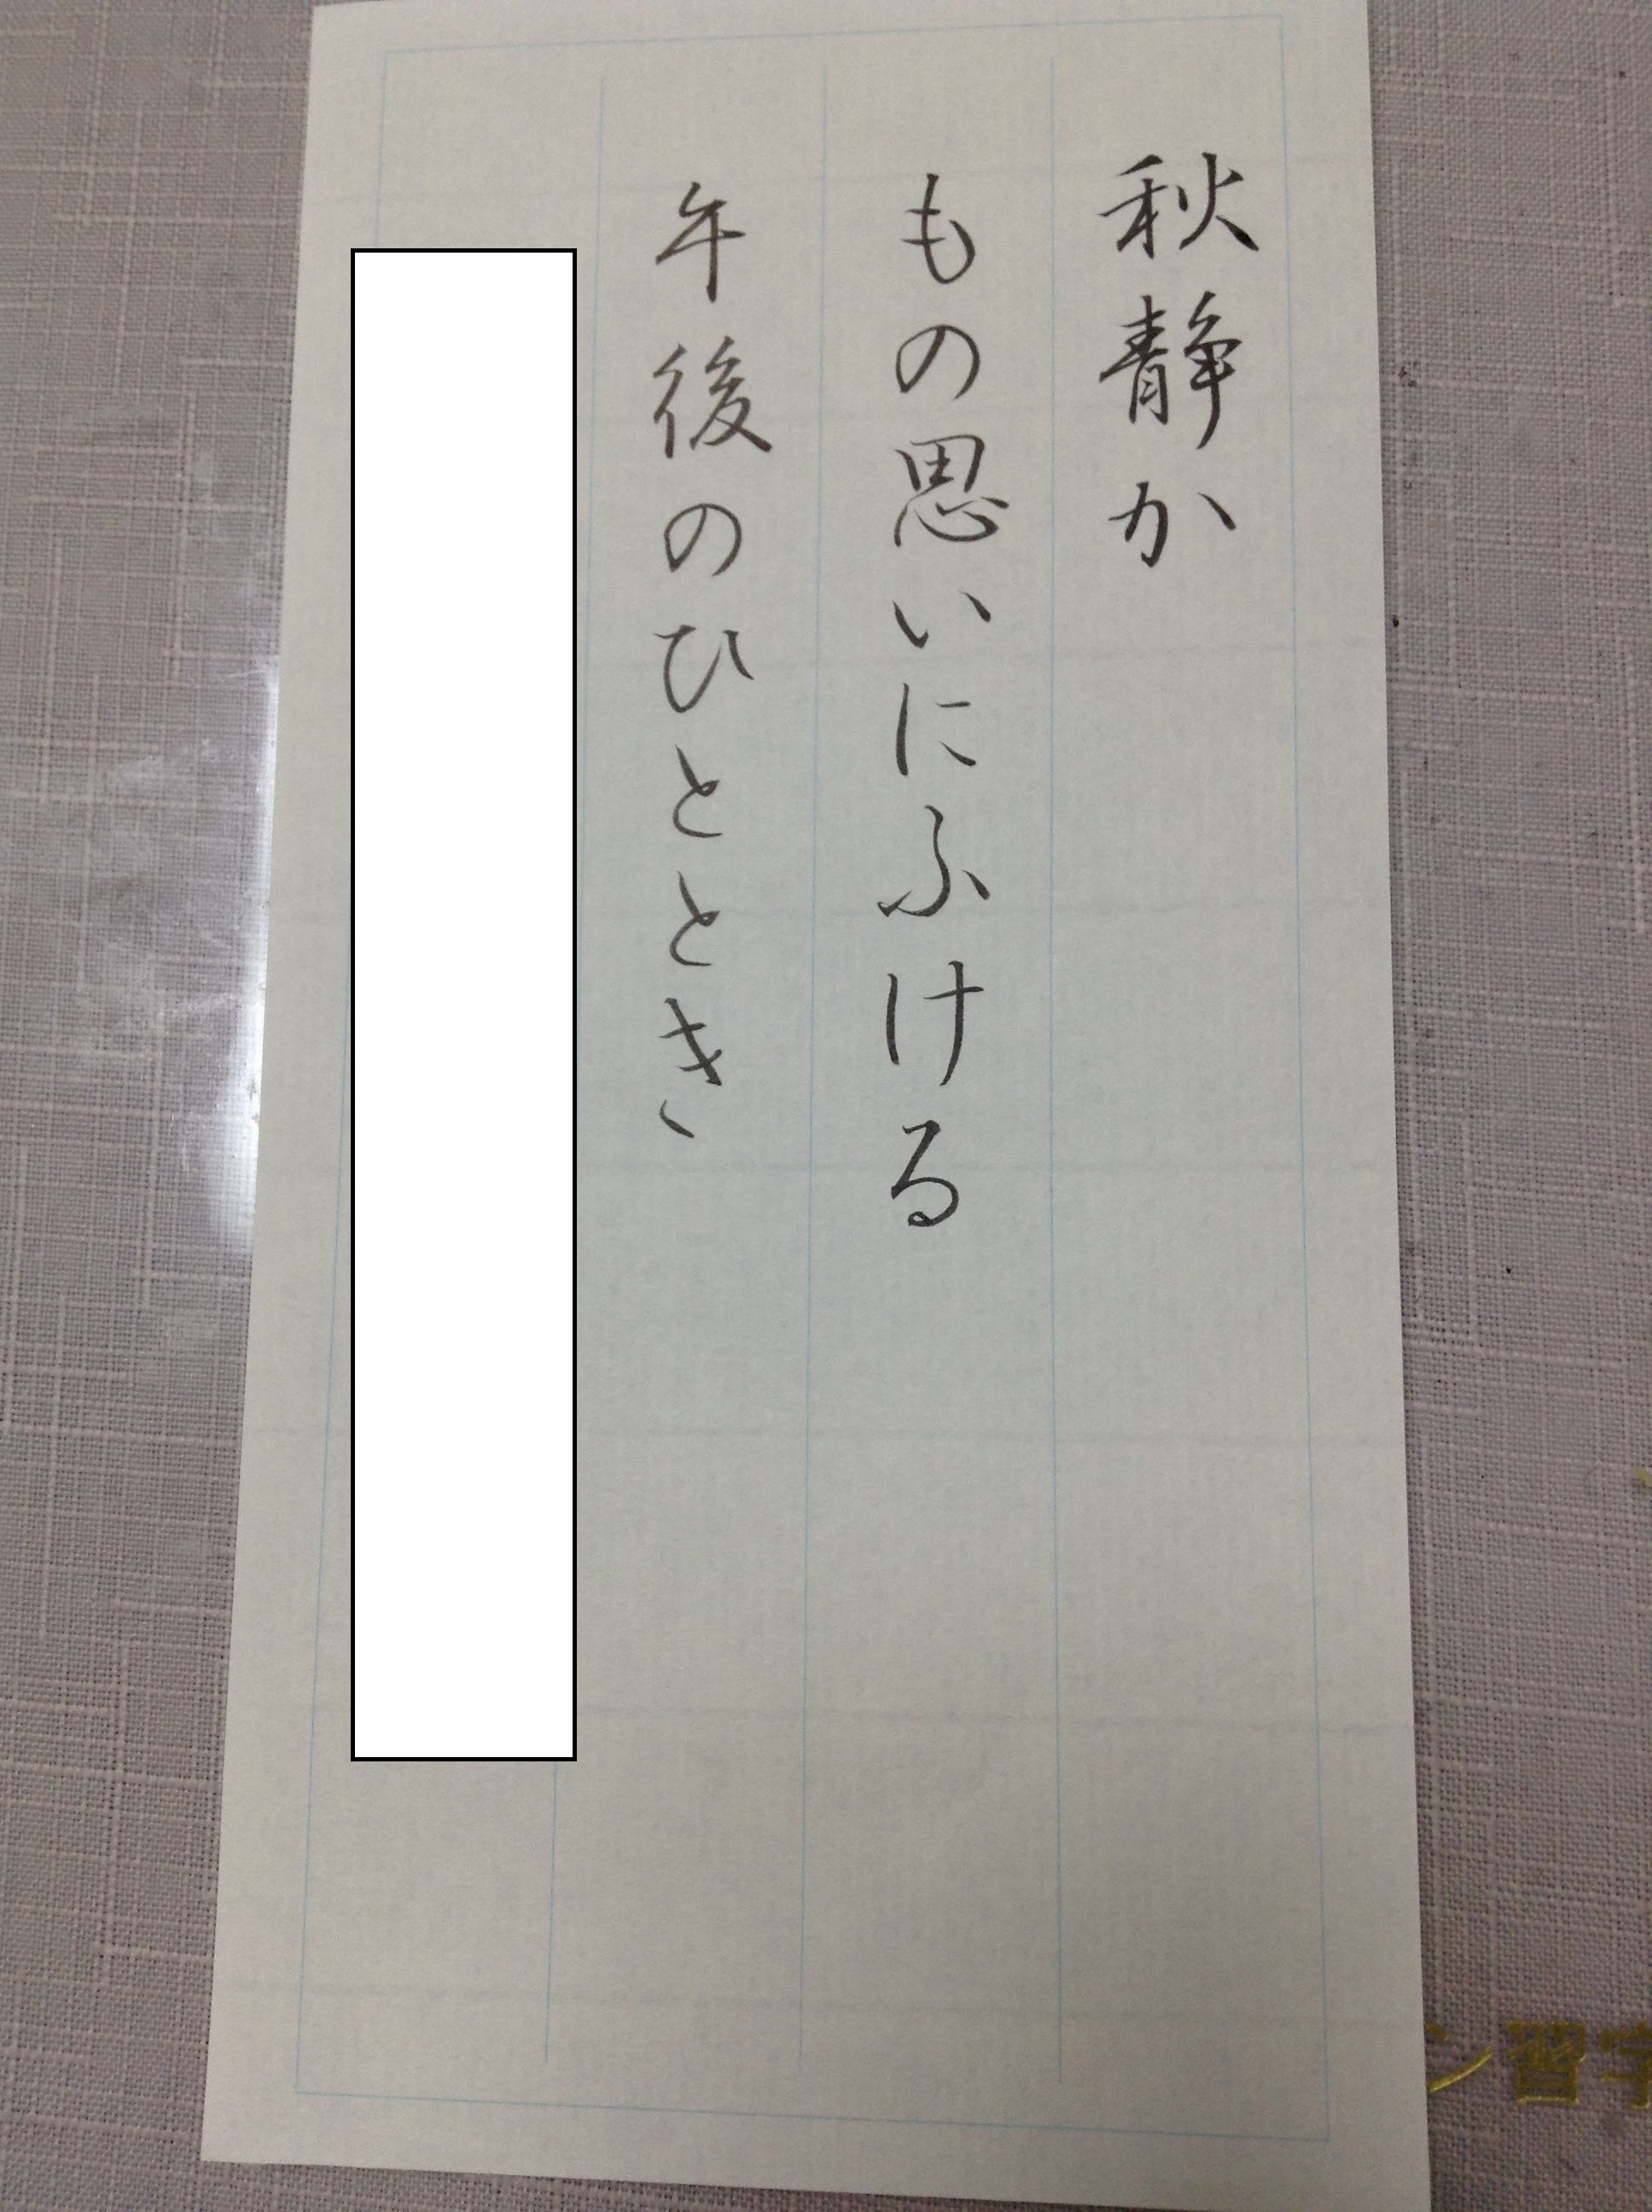 秋静か
もの思いにふける
午後のひととき
ン習字